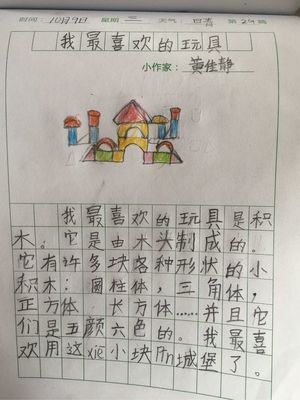 时间：10月9日 星期三 天气：晴 第29篇
我最喜欢的玩具
小作家：黄佳静
我最喜欢的玩具是积
木。它是由木头制成的。
它有许多块各种形状的小
积木：圆柱体，三角体，
正方体 长方体……并且它
们是五颜六色的。我最喜
欢用这xiē小块pīn城堡了。